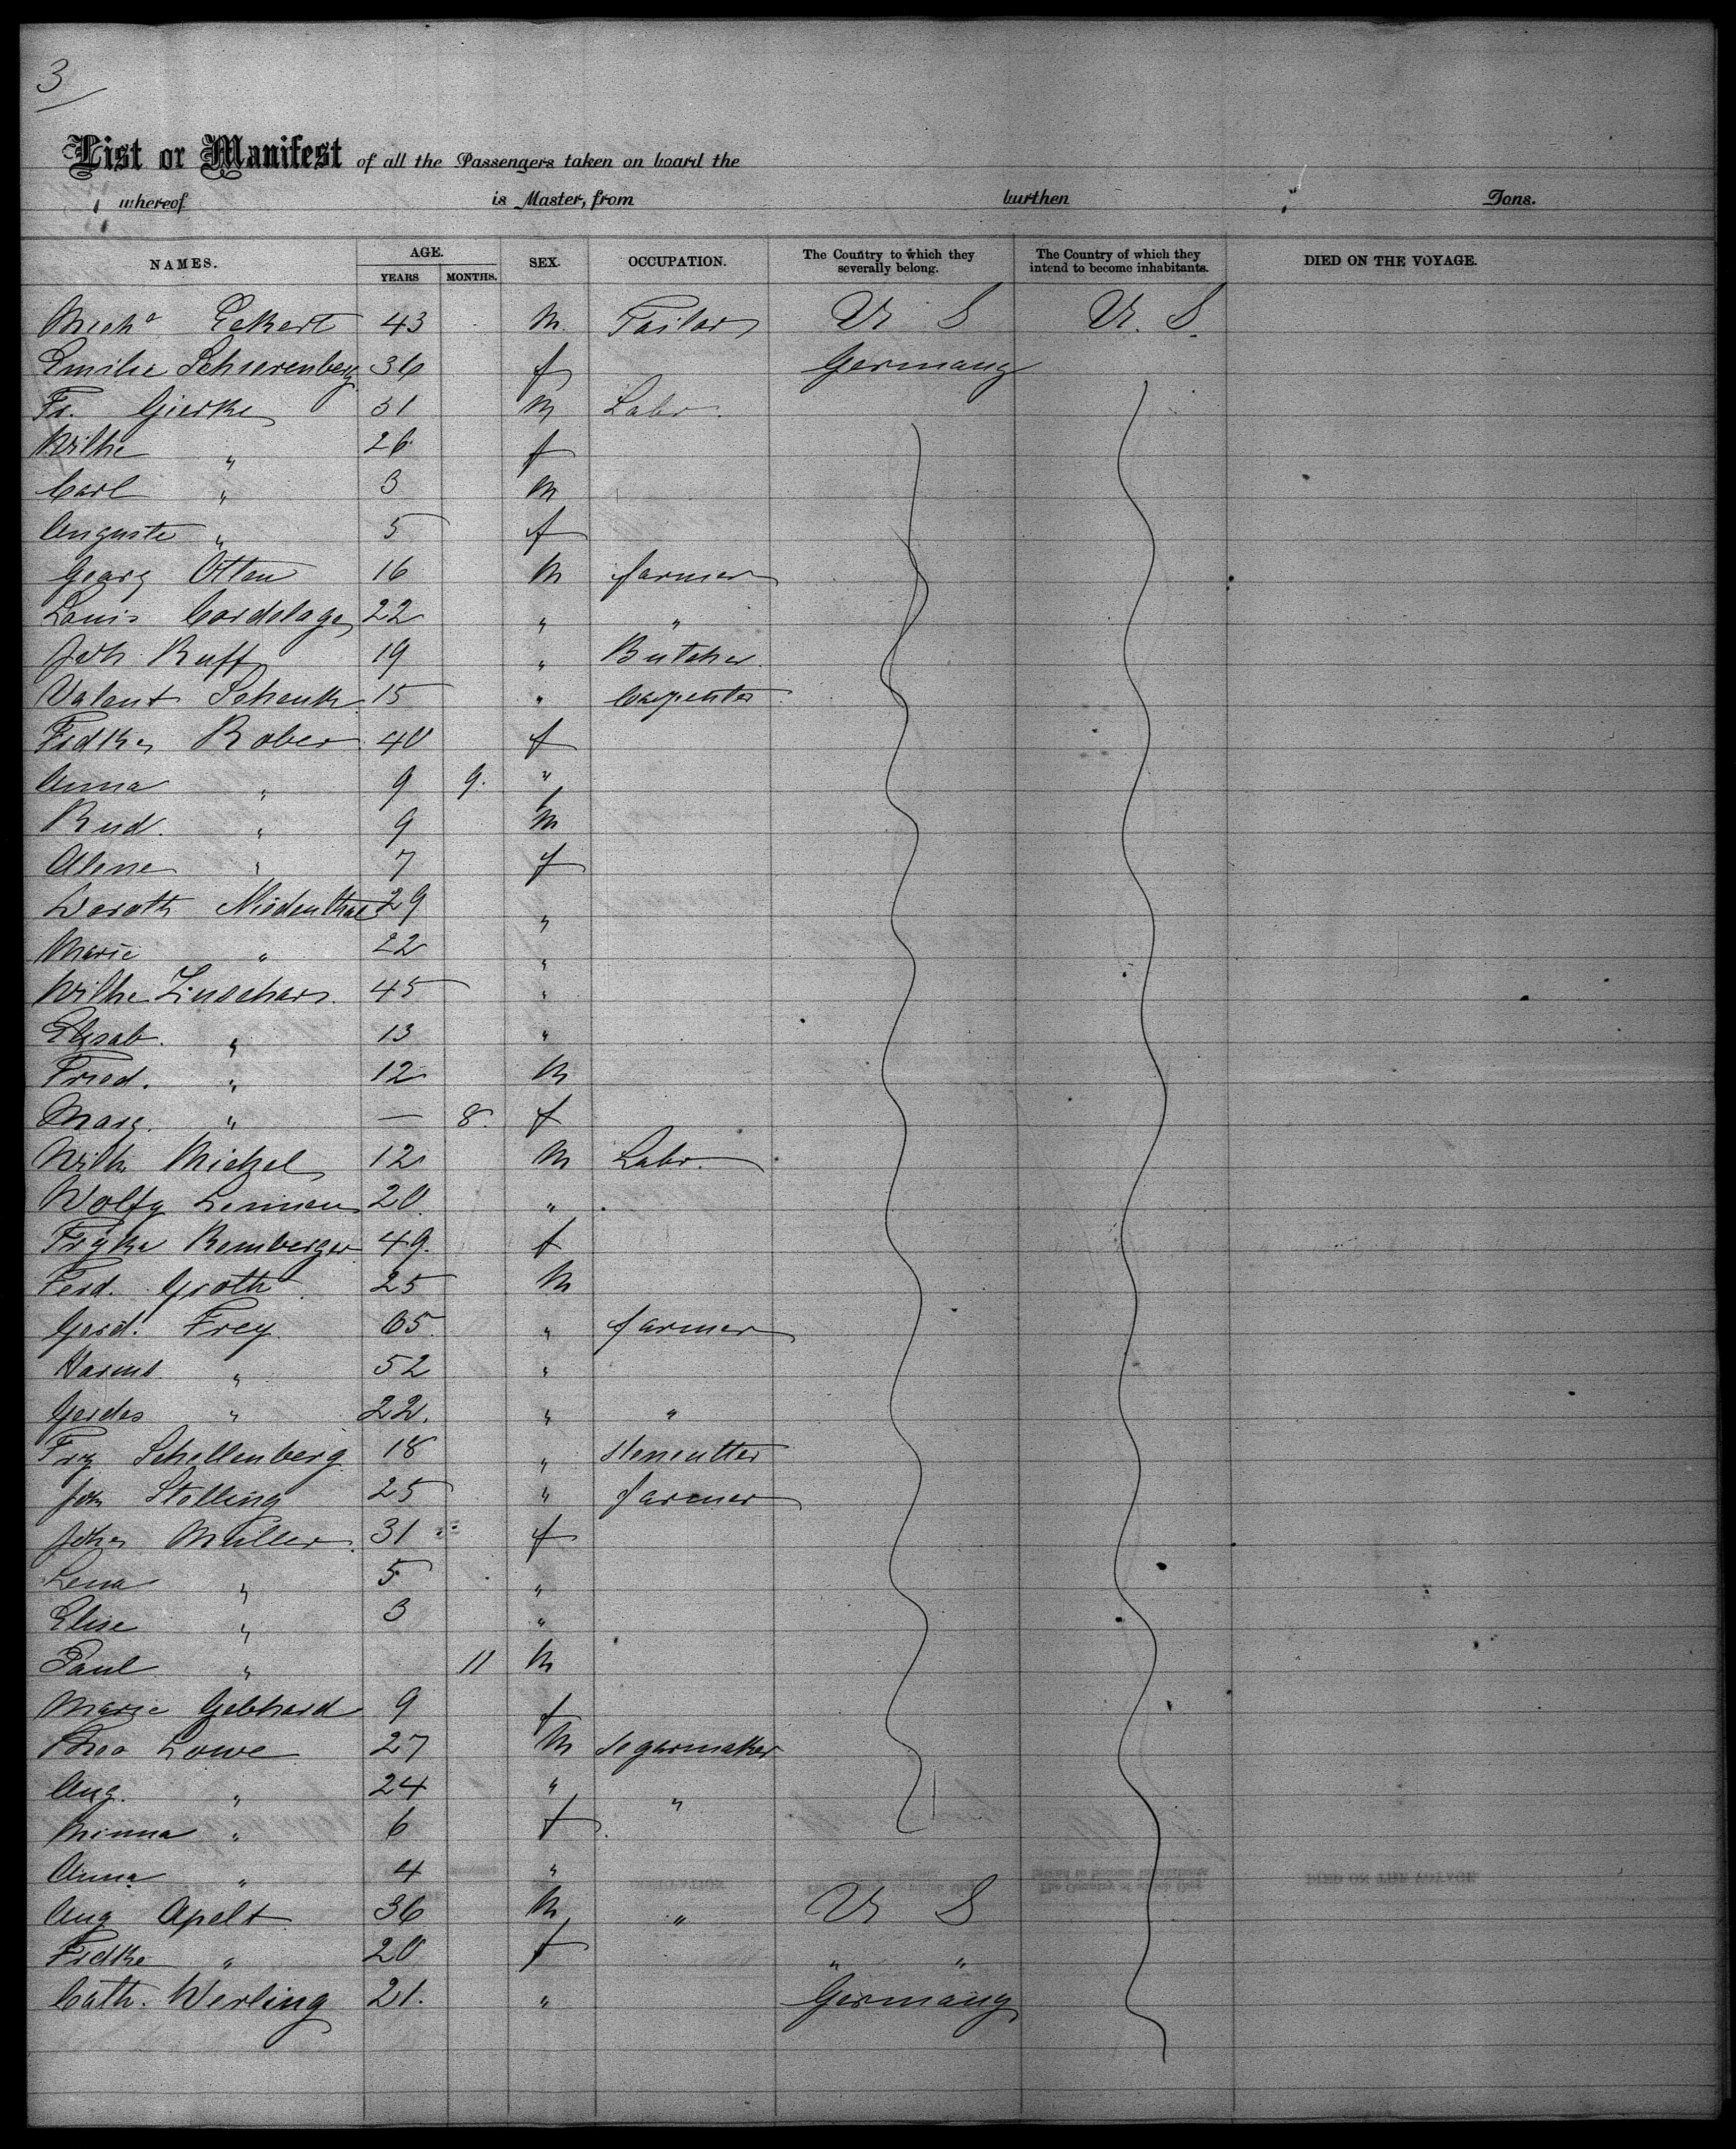 3
List or Manifest of all the Passengers taken on board the
whereof is Master, from burthen Tons.
NAMES. AGE. YEARS MONTHS. SEX. OCCUPATION. The Country to which they severally belong. The Country of which they intend to become inhabitants. DIED ON THE VOYAGE.
Micha Eckert 43 M. Tailor U S U. S.
Emilie Schierenberg 36 f Germany
Fr. Gierke 31 M Labr.
Wilhe " 26 f
Carl " 3 M
Auguste " 5 f
Georg Otten 16 M farmer
Louis Cordslage 22 " "
Joh Ruff 19 " Butcher.
Valent Schenk 15 " Carpenter
Fridke Rober 40 f
Anna " 9 9. "
Rud. " 9 M
Alene " 7 f
Doroth Niedenthal 29 "
Marie " 22 "
Wilhe 45 "
Elisab. " 13 "
Fried. " 12 M
Marg. " — 8. f
Wilh. Michel 12 M Labr.
Wolfg 20. "
Frijke Remberger 49. f
Ferd. Groth 25 M
Gerd. Frey 65 " farmer
Harms " 52 "
Gerdes " 22. " "
Frz Schellenberg 18 " stonecutter
Joh Stolling 25 " farmer
Joha Müller 31 f
Lena " 5 "
Elise " 3 "
Paul " 11 M
Marie Gebhard 9 f
Theo Lowe 27 M Segarmaker
Aug. " 24 " "
Minna " 6 f
Anna " 4 "
Aug Apelt 36 M " U S
Fridke " 20 f " "
Cath. Werling 21. " Germany